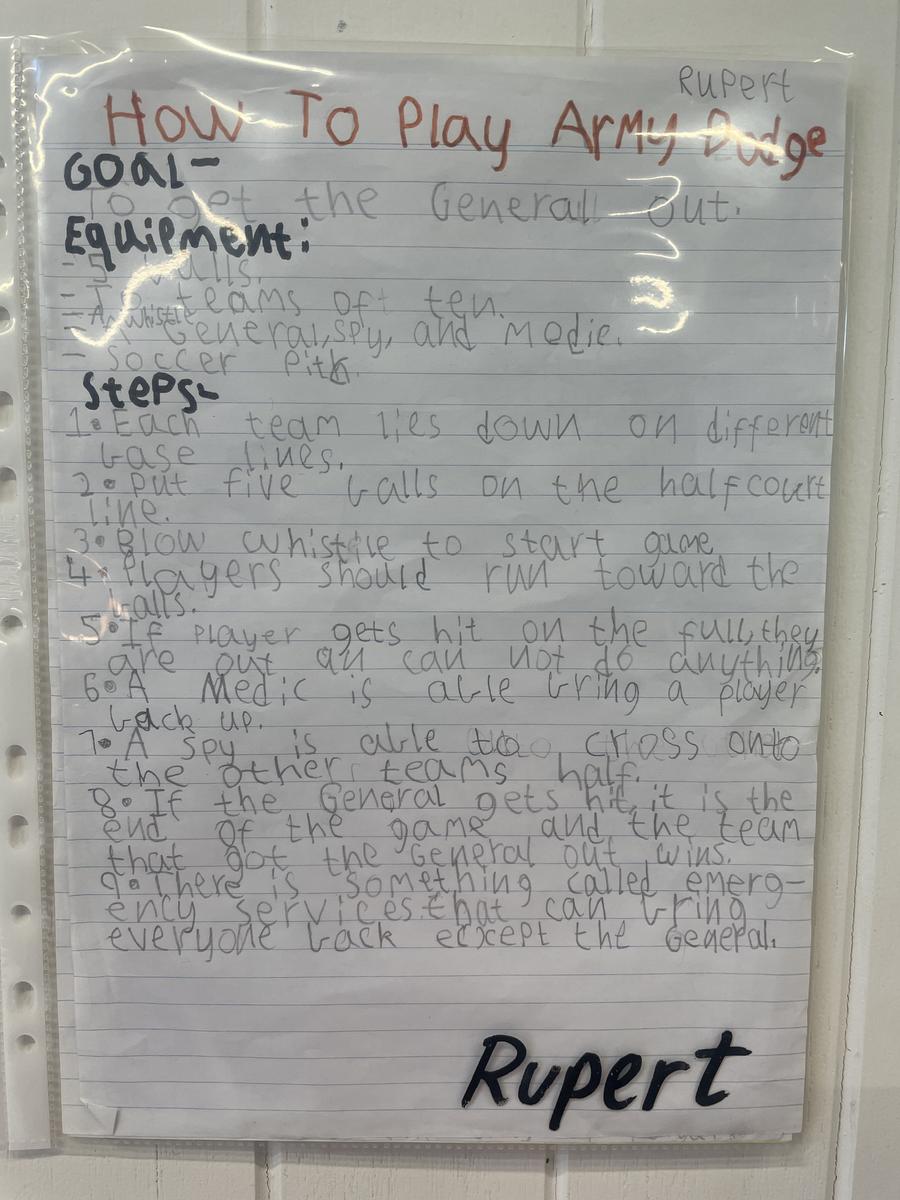 Rupert
How To Play Army Dodge
GOAL-
To get the General out.
Equipment:
- 5 balls.
- teams of ten.
- A whistle
- General, spy, and Medic.
- Soccer Pitk.
Steps-
1. Each team lies down on different
base lines.
2. Put five balls on the halfcourt
line.
3. Blow whistle to start game
4. Players should run toward the
balls.
5. If player gets hit on the full, they
are out an can not do anything.
6. A Medic is able bring a player
back up.
7. A spy is able to cross onto
the other teams half.
8. If the General gets hit, it is the
end of the game and the team
that got the General out wins.
9. There is something called emerg-
ency services that can bring
everyone back except the General.
Rupert